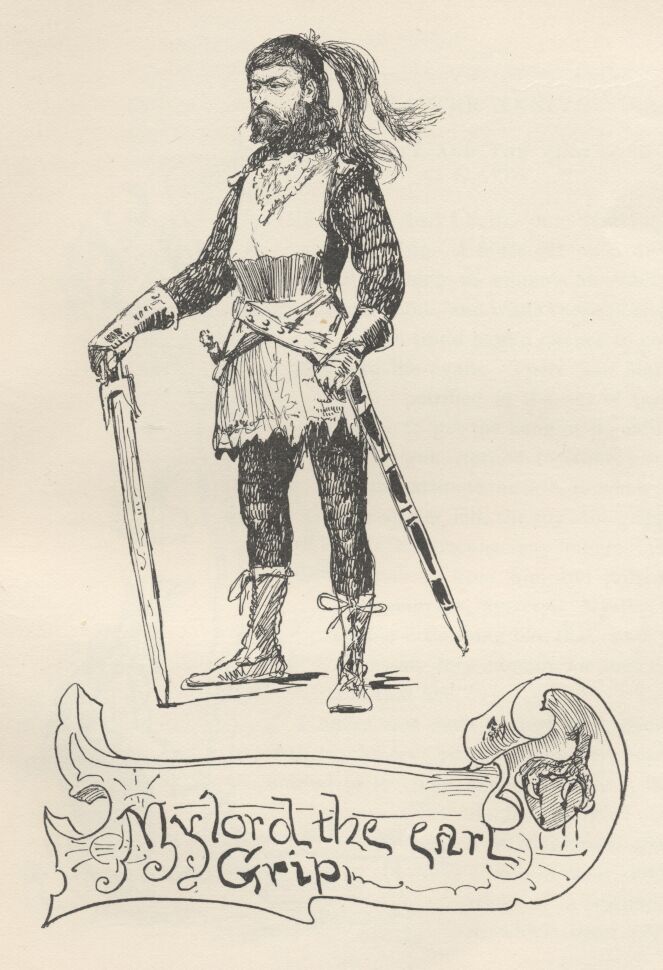 My lord the earl
Grip